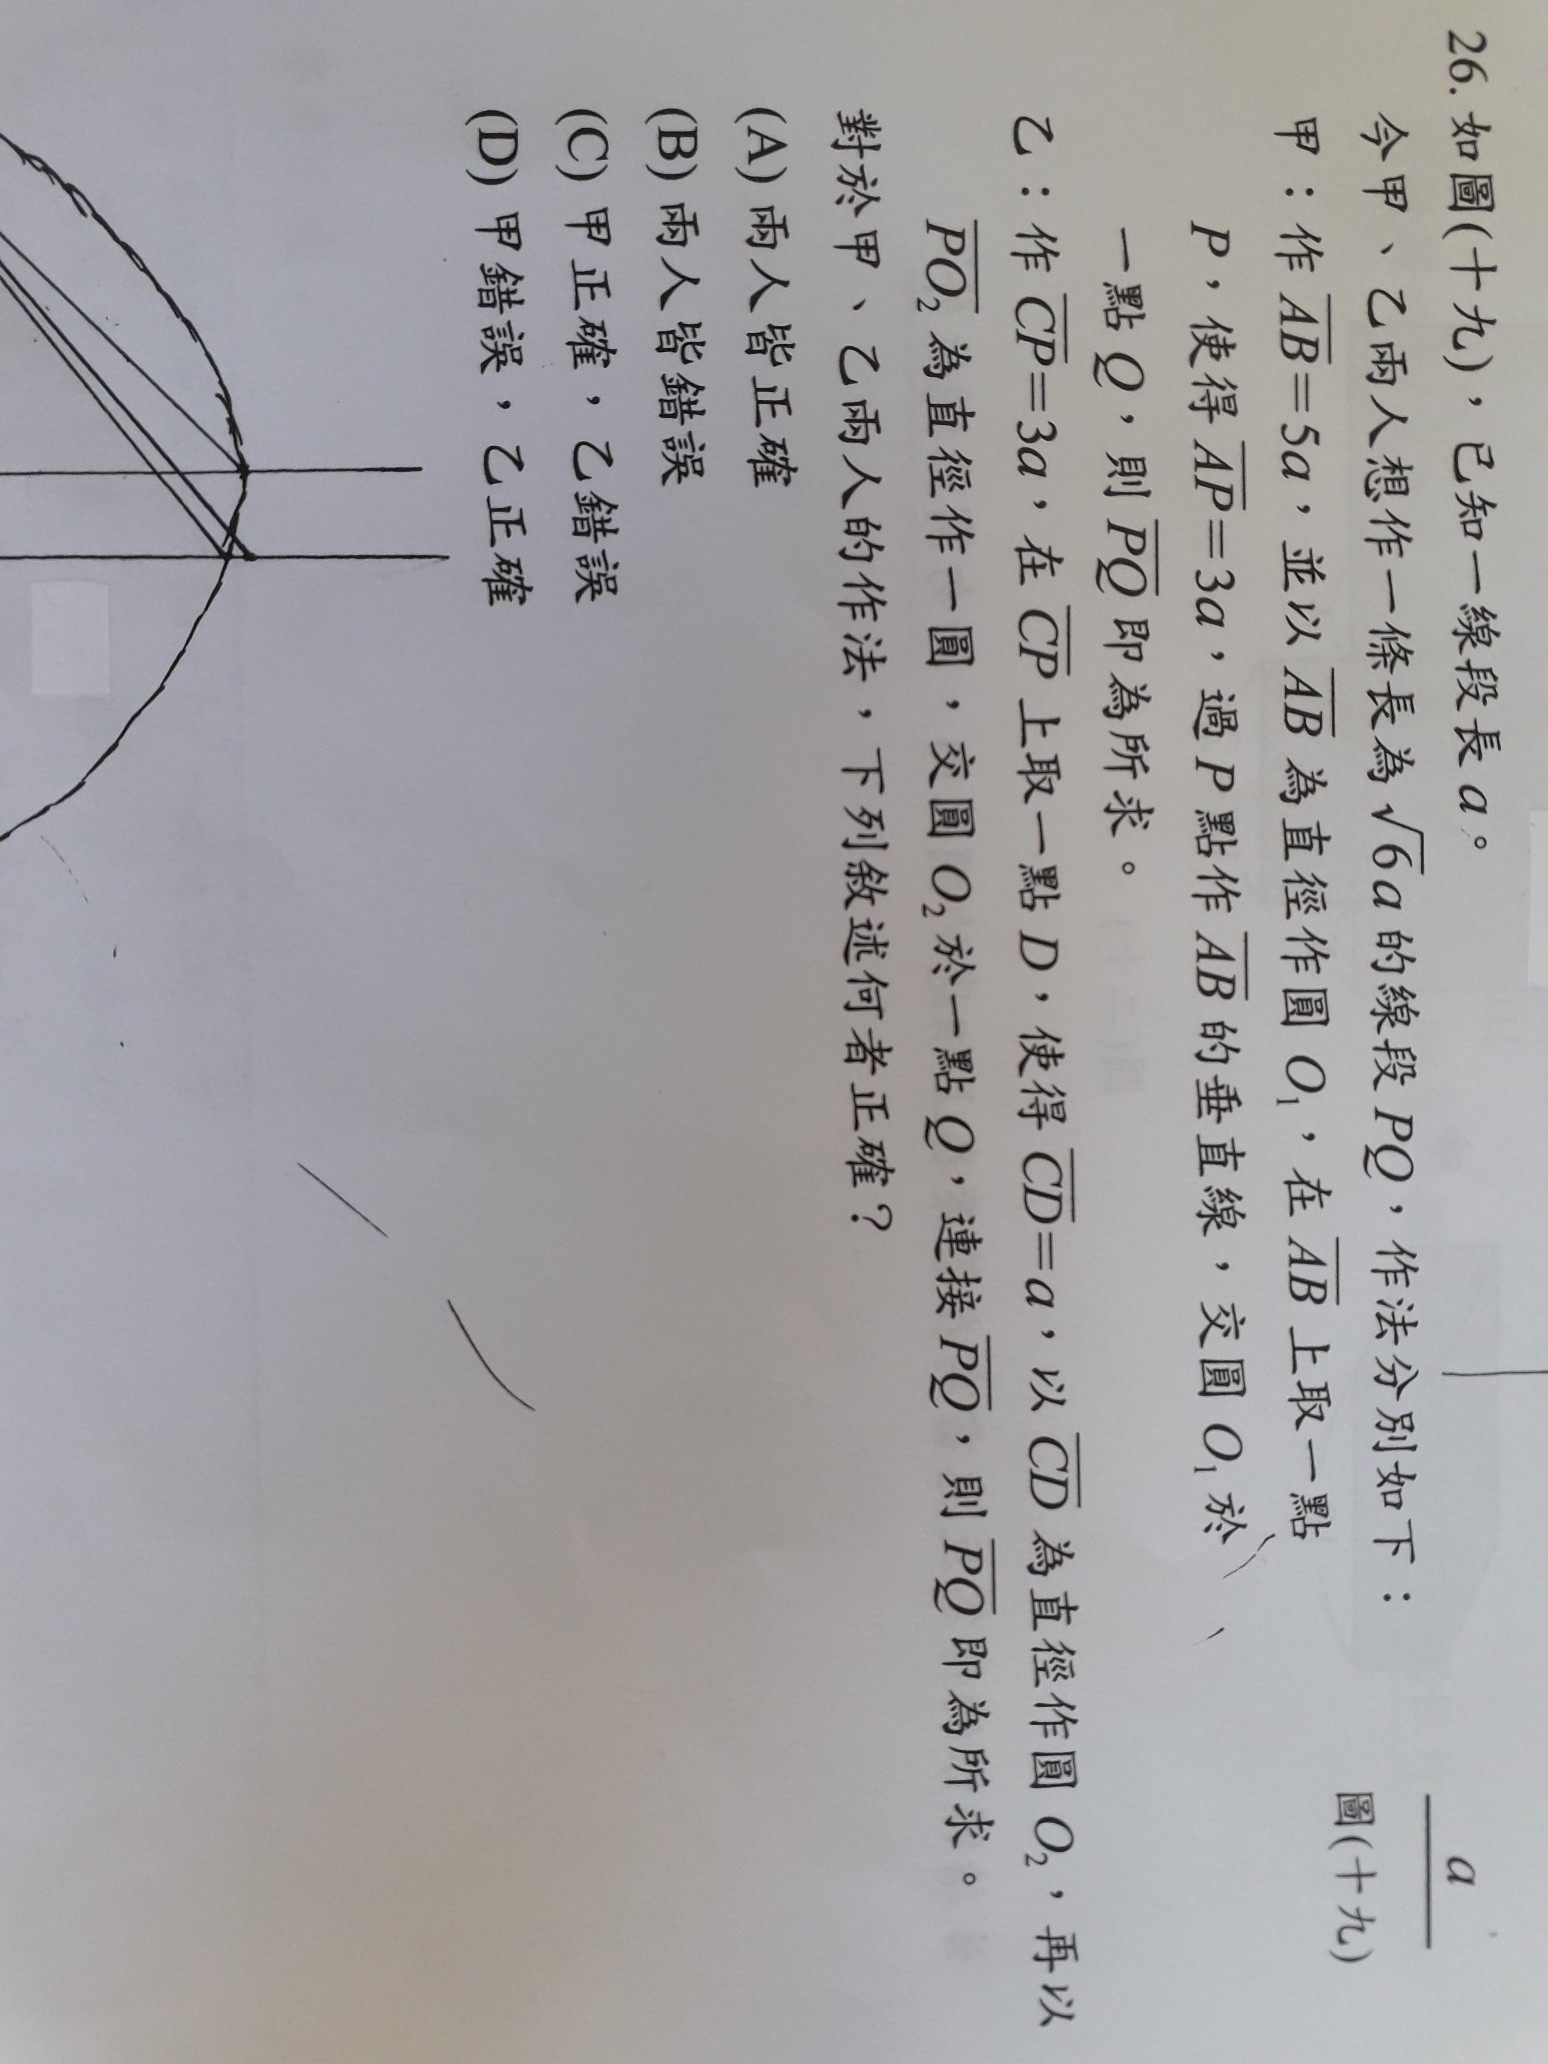 26. 如圖(十九)，已知一線段長 a。
今甲、乙兩人想作一條長為 √6a 的線段 PQ，作法分別如下：
甲：作 AB=5a，並以 AB 為直徑作圓 O₁，在 AB 上取一點
P，使得 AP=3a，過 P 點作 AB 的垂直線，交圓 O₁ 於
一點 Q，則 PQ 即為所求。
乙：作 CP=3a，在 CP 上取一點 D，使得 CD=a，以 CD 為直徑作圓 O₂，再以
PO₂ 為直徑作一圓，交圓 O₂ 於一點 Q，連接 PQ，則 PQ 即為所求。
對於甲、乙兩人的作法，下列敘述何者正確？
(A) 兩人皆正確
(B) 兩人皆錯誤
(C) 甲正確，乙錯誤
(D) 甲錯誤，乙正確
a
圖(十九)